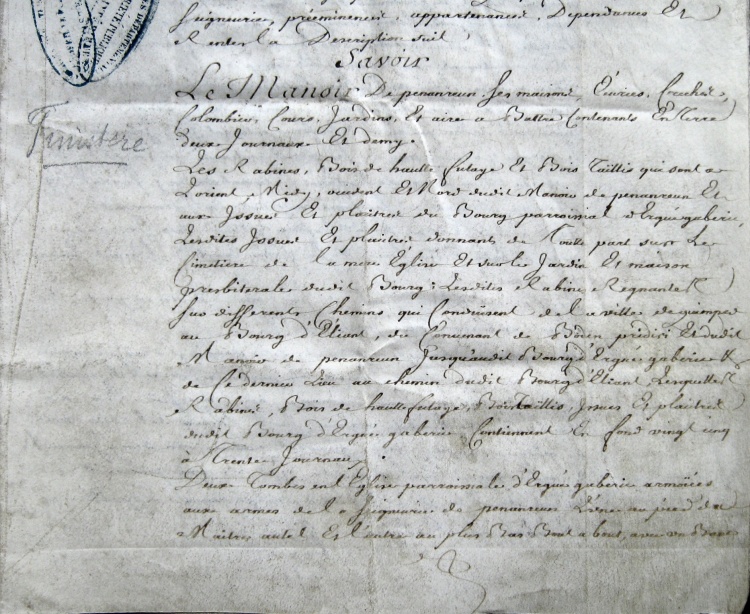 Seigneurie, prééminences, appartenances, Dependances Et
Rentes La Description suit
Savoir
Le Manoir De penanreun ses maisons, Ecuries, Creches,
Colombier, Cours, Jardins, Et aire a Battre Contenants En Terre
deux Journaux Et demy.
Finistère
Les Rabines, Bois de haute futaye Et Bois Taillis qui sont a
Lorient, Midy, occident Et Nord dudit Manoir de penanreun Et
aux Issues Et plaitres du Bourg parroissial d'Ergué gaberic,
Lesdites Issues Et plaitres donnants de Toutte part sur Le
Cimetiere de la mere Eglise Et sur le Jardin Et maison
presbiterale dudit Bourg; Lesdites Rabines Regnante
sus differents Chemins qui Conduisent de la ville de quimper
au Bourg d'Eliant, du Convenant de Et dudit
Manoir de penanreun Jusqu'audit Bourg d'Ergué gaberic &
de Ce dernier Lieu au chemin dudit Bourg d'Eliant Lesquelles
Rabines, Bois de haulte futaye, Bois Taillis, Issues Et plaitres
dudit Bourg d'Ergué gaberic Contiennent En fond vingt cinq
à Trente Journaux.
Deux Tombes en L'Eglise parroissiale d'Ergué gaberic armoiées
aux armes de la Seigneurie de penanreun L'une au pied du
Maitre autel Et L'autre au plus Bas Bout a bout, avec un Banc